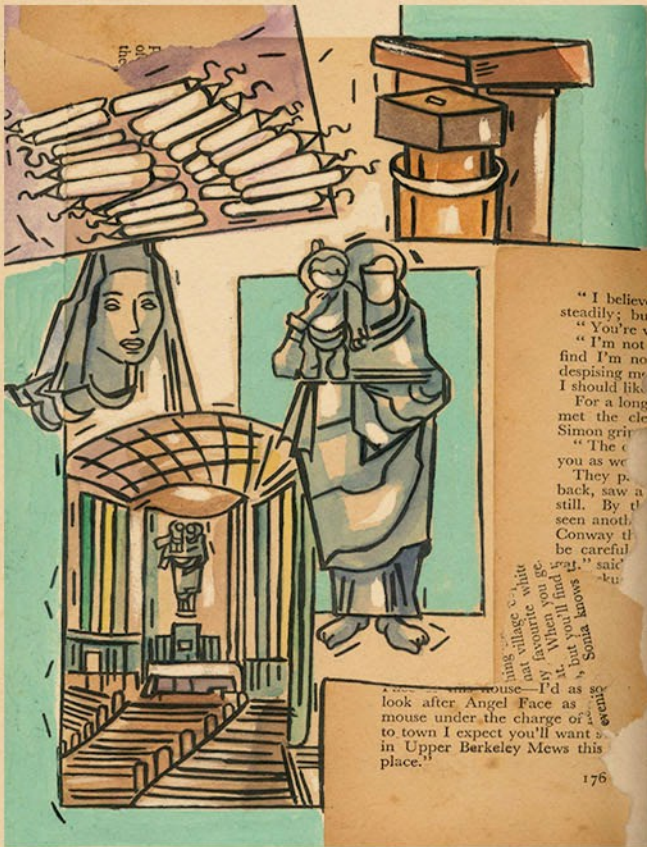 of
the
“ I believe
steadily; bu
“ You’re v
“ I’m not
find I’m no
despising m
I should lik
For a long
met the cle
Simon grip
“ The c
you as we
They p
back, saw a
still. By th
seen anoth
Conway th
be careful
at.” said
hing
hat village
y favourite white
When you ge
but you’ll find
Sonia knows
eveni
this house—I’d as so
look after Angel Face as
mouse under the charge of
to town I expect you’ll want s
in Upper Berkeley Mews this
place.”
176